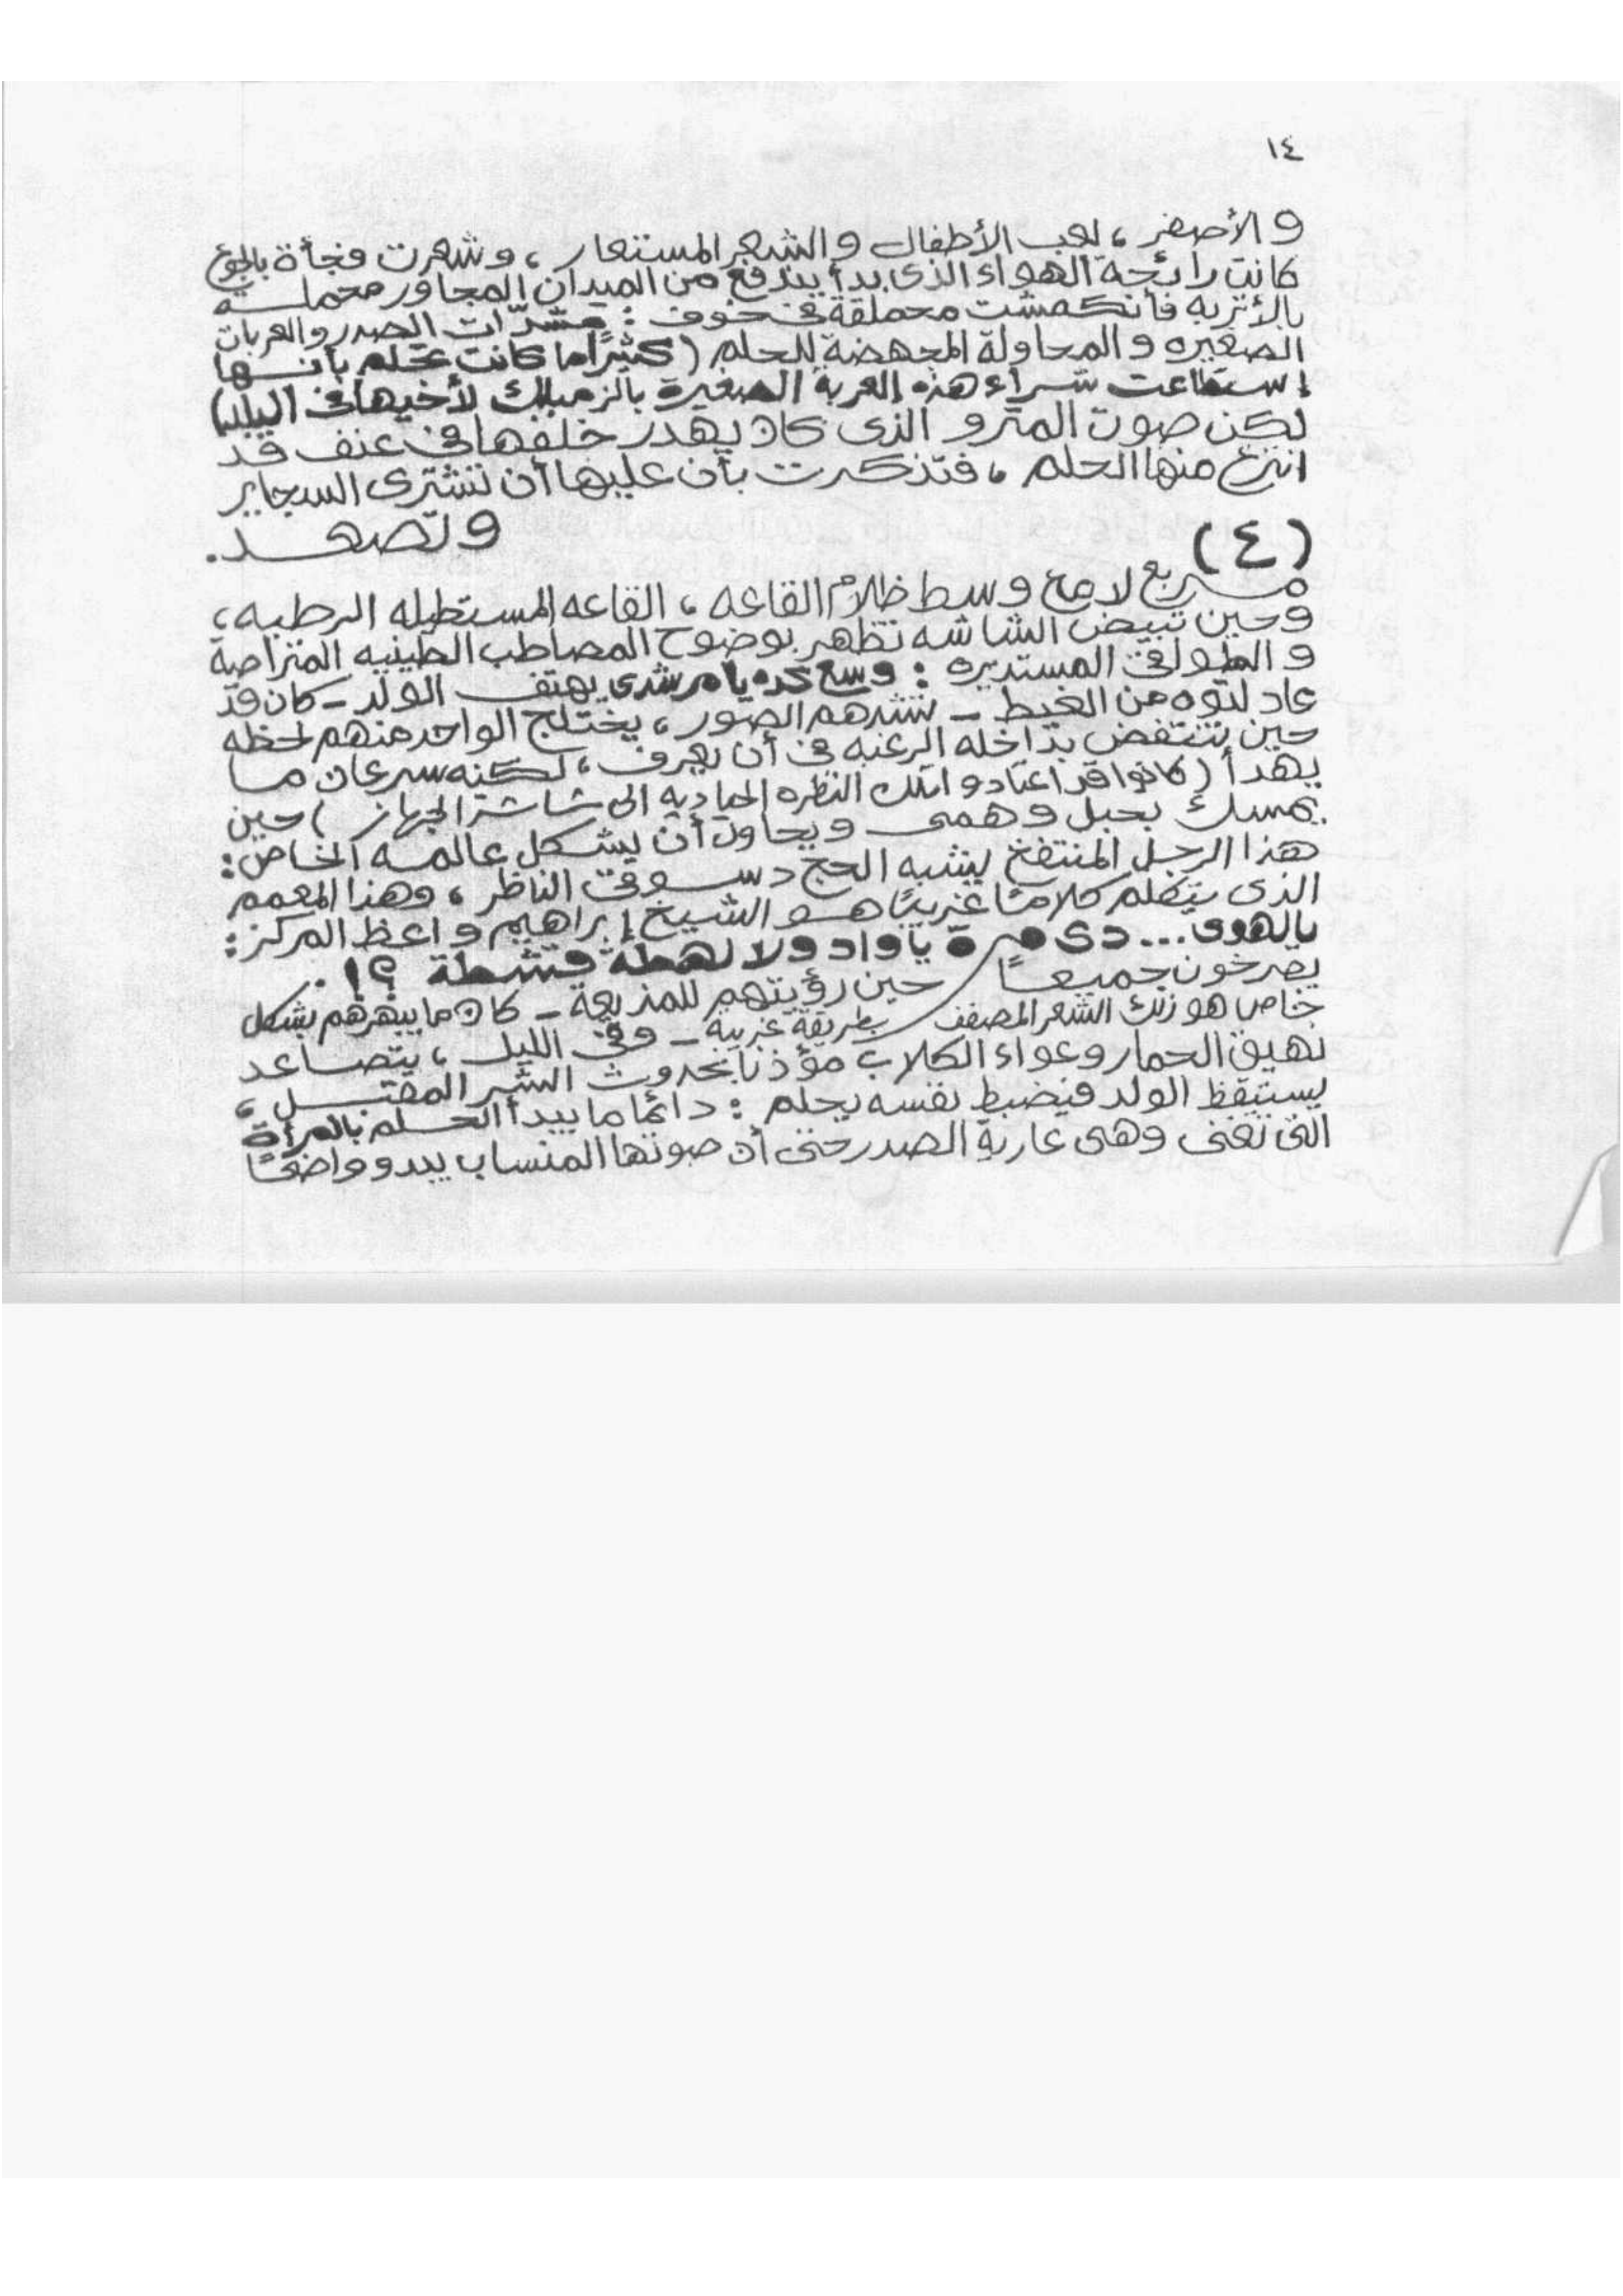 ١٤
و الأصفر ، لعب الأطفال و الشعر المستعار ، وشعرت فجأة بالجوع
كانت رائحة الهواء الذى بدأ يندفع من الميدان المجاور محملـــة
بالأتربه فأنكمشت محملقة فى خوف : مشدّات الصدر والعربات
الصغيره و المحاولة المجهضة للحلم ( كثيرًا ما كانت تحلم بأنـــها
إستطاعت شراء هذه العربة الصغيرة بالزمبلك لأخيها فى البلد)
لكن صوت المترو الذى كان يهدر خلفها فى عنف قد
انتزع منها الحلم ، فتذكرت بأن عليها أن تشترى السجاير
وتصعـــد.
(٤)
مـــربع لامع وسط ظلام القاعه ، القاعه المستطيله الرطبه ،
وحين تبيض الشاشه تظهر بوضوح المصاطب الطينيه المتراصة
و الطواقى المستديره : وسع كده يا مرشدى يهتف الولد - كان قد
عاد لتوه من الغيط - تشدهم الصور ، يختلج الواحد منهم لحظه
حين تنتفض بداخله الرغبه فى أن يعرف ، لكنه سرعان ما
يهدأ ( كانوا قد اعتادوا تلك النظره الحياديه الى شاشة الجهاز ) حين
يمسك بحبل وهمى ويحاول أن يشكل عالمـه الخاص :
هذا الرجل المنتفخ يشبه الحج دســوقى الناظر ، وهذا المعمم
الذى يتكلم كلامًا غريبًا هــو الشيخ إبراهيم واعظ المركز :
يالهوى... دى مرة يا واد ولا لهطة قشطة ؟! .
يصرخون جميعـــًا حين رؤيتهم للمذيعة - كان ما يبهرهم بشكل
خاص هو ذلك الشعر المصفف بطريقة غريبة - وفى الليل ، يتصاعد
نهيق الحمار وعواء الكلاب مؤذنًا بحدوث الشـــر المقبـــل ،
يستيقظ الولد فيضبط نفسه يحلم : دائمًا ما يبدأ الحــلم بالمرأة
التى تغنى وهى عارية الصدر حتى أن صوتها المنساب يبدو واضحًا